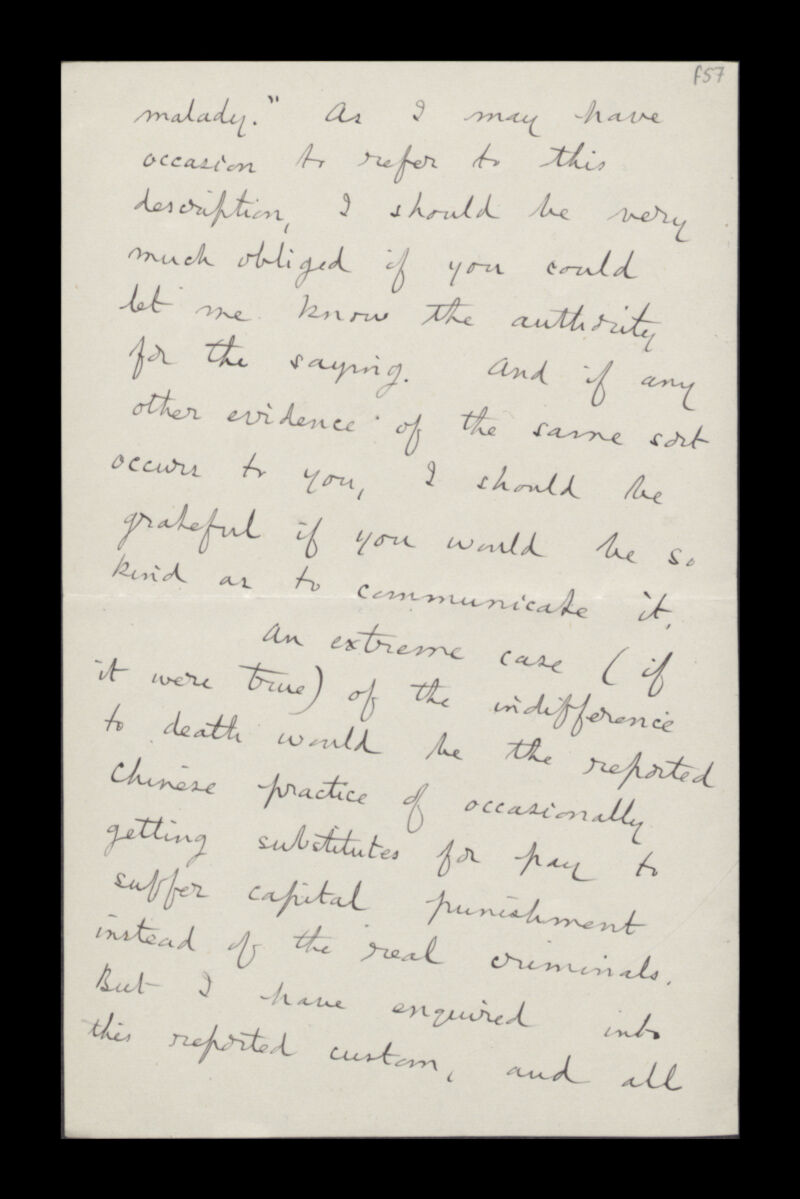 f57
malady." As I may have
occasion to refer to this
description, I should be very
much obliged if you could
let me know the authority
for the saying. And if any
other evidence of the same sort
occurs to you, I should be
grateful if you would be so
kind as to communicate it.
An extreme case (if
it were true) of the indifference
to death would be the reported
Chinese practice of occasionally
getting substitutes for pay to
suffer capital punishment
instead of the real criminals.
But I have enquired into
this reported custom, and all